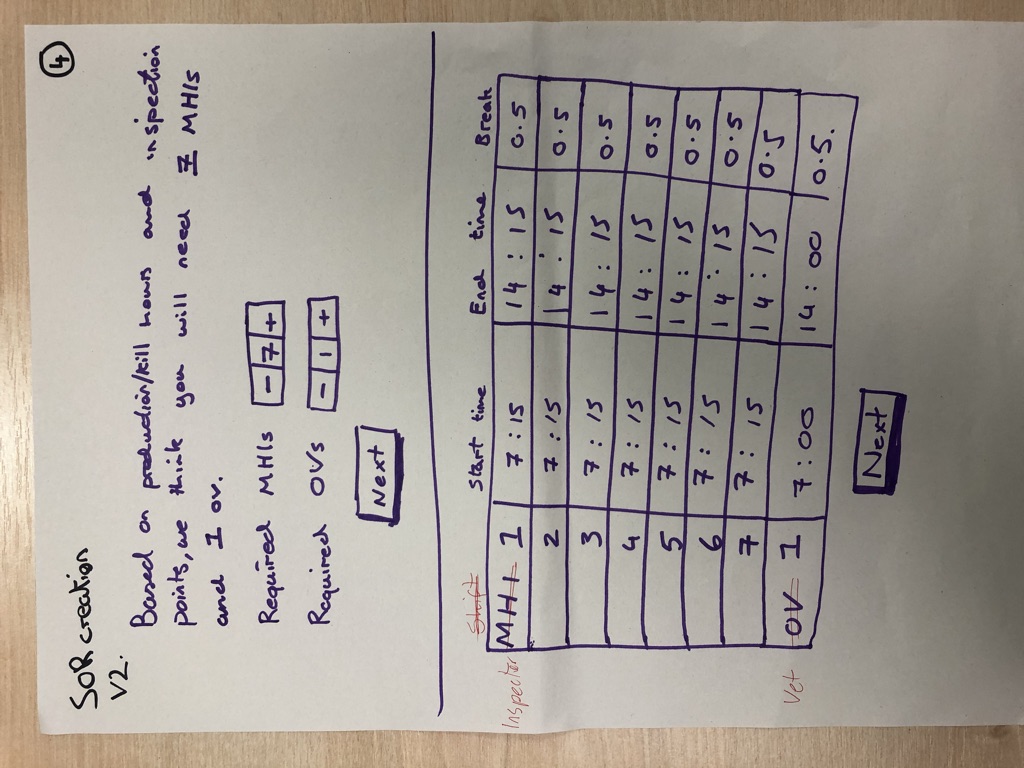 SOR creation
V2.
4
Based on production/kill hours and inspection
points, we think you will need 7 MHIs
and 1 ov.
Required MHIs - 7 +
Required OVs - 1 +
Next
Shift Start time End time Break
Inspector MHI 1 7:15 14:15 0.5
2 7:15 14:15 0.5
3 7:15 14:15 0.5
4 7:15 14:15 0.5
5 7:15 14:15 0.5
6 7:15 14:15 0.5
7 7:15 14:15 0.5
Vet OV 1 7:00 14:00 0.5.
Next